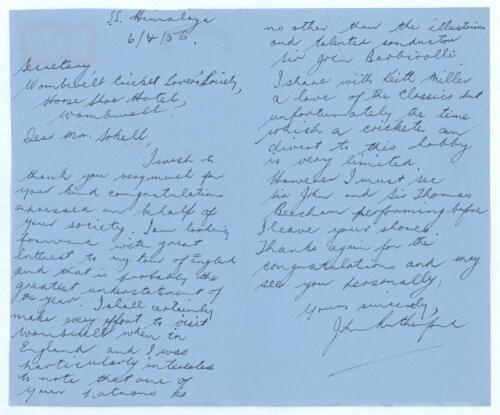 SS. Himalaya
6/4/56.
Secretary
Wombwell Cricket Lovers Society,
Horse Shoe Hotel,
Wombwell.
Dear Mr. Sokell,
I wish to
thank you very much for
your kind congratulations
expressed on behalf of
your society. I am looking
forward with great
interest to my tour of England
and that is probably the
greatest understatement of
the year. I shall certainly
make every effort to visit
Wombwell when in
England and I was
particularly interested
to note that one of
your patrons is
no other than the illustrious
and talented conductor
Sir John Barbirolli.
I share with Keith Miller
a love of the classics but
unfortunately the time
which a cricketer can
divert to this hobby
is very limited.
However I must see
Sir John and Sir Thomas
Beecham performing before
I leave your shores.
Thanks again for the
congratulations and may
see you personally,
Yours sincerely,
John Rutherford